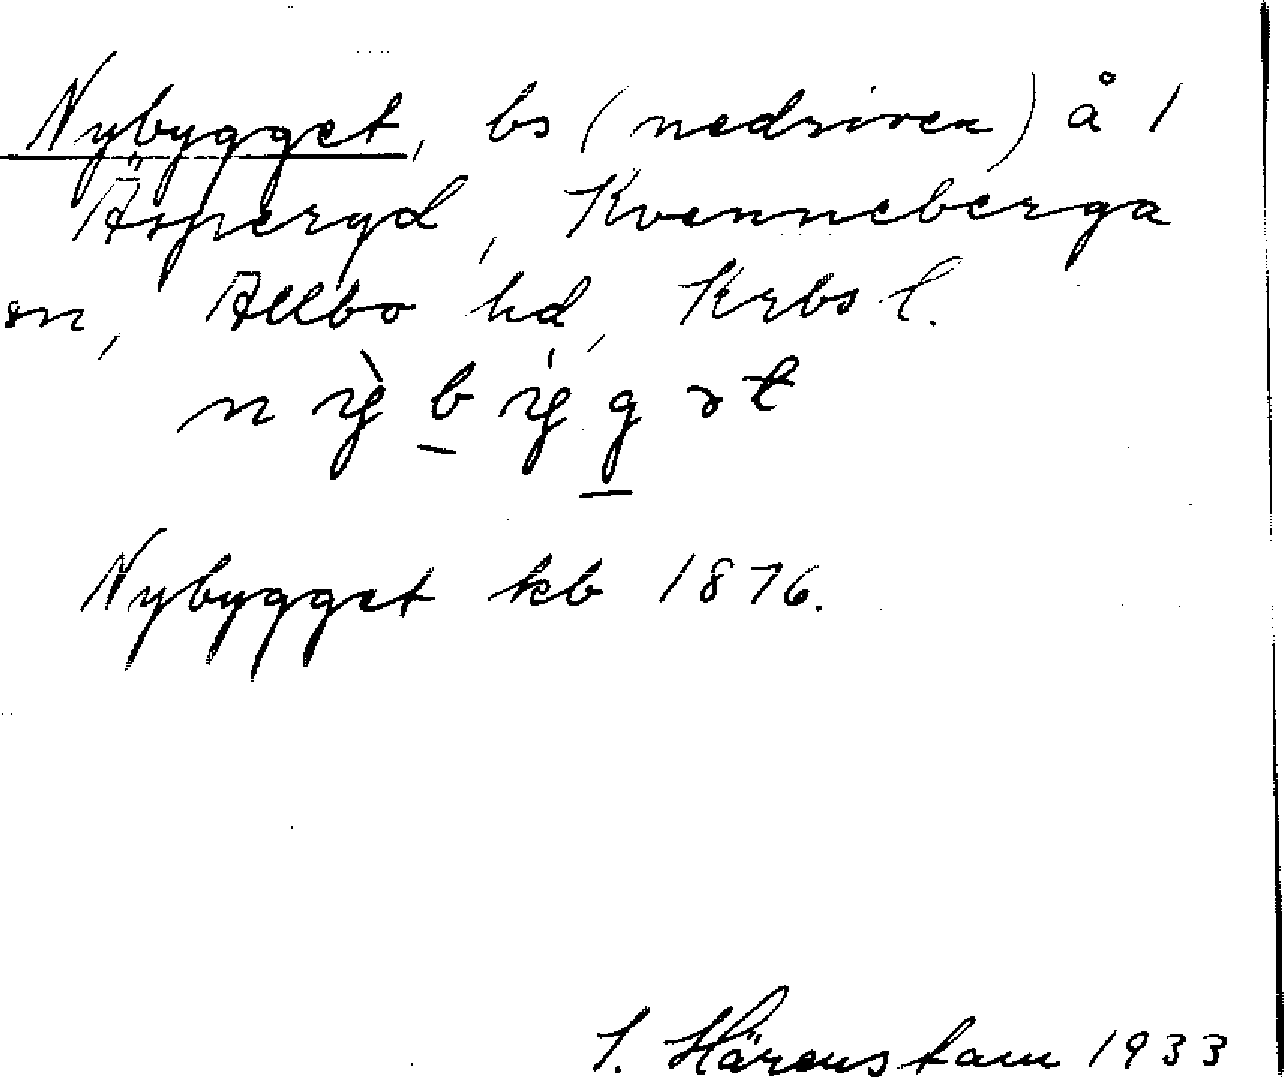 Nybygget, bs (nedriven) å 1
Äsperyd, Kvenneberga
sn, Allbo hd, Krbs l.
nỳ̖bý̖gət
Nybygget kb 1876.
S. Härenstam 1933